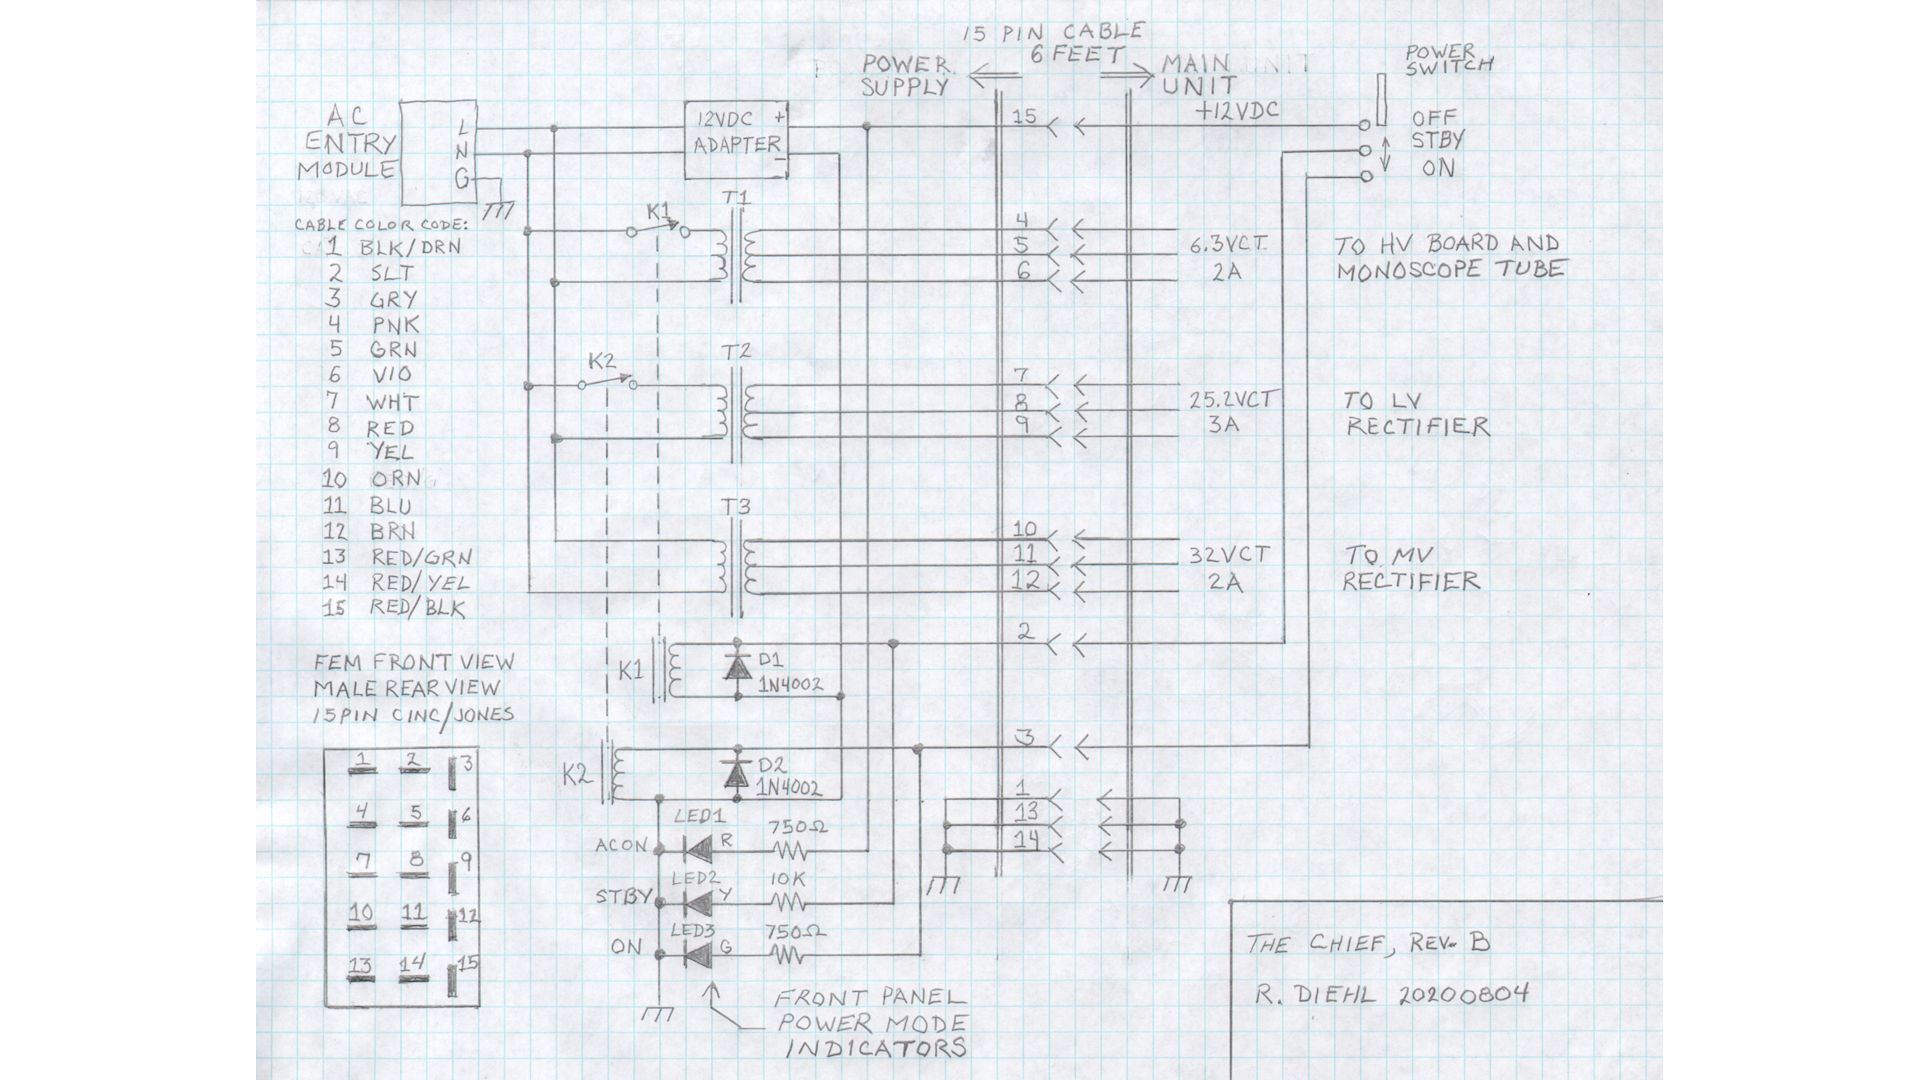 15 PIN CABLE
6 FEET
POWER SUPPLY
MAIN UNIT
POWER SWITCH
+12VDC
OFF
STBY
ON
AC ENTRY MODULE
L
N
G
12VDC +
ADAPTER -
15
CABLE COLOR CODE:
1 BLK/DRN
2 SLT
3 GRY
4 PNK
5 GRN
6 VIO
7 WHT
8 RED
9 YEL
10 ORN
11 BLU
12 BRN
13 RED/GRN
14 RED/YEL
15 RED/BLK
K1
T1
4
5
6
6.3VCT
2A
TO HV BOARD AND
MONOSCOPE TUBE
K2
T2
7
8
9
25.2VCT
3A
TO LV
RECTIFIER
T3
10
11
12
32VCT
2A
TO MV
RECTIFIER
K1
D1
1N4002
2
K2
D2
1N4002
3
1
13
14
FEM FRONT VIEW
MALE REAR VIEW
15PIN CINC/JONES
1 2 3
4 5 6
7 8 9
10 11 12
13 14 15
LED1
ACON R 750Ω
LED2
STBY Y 10K
LED3
ON G 750Ω
FRONT PANEL
POWER MODE
INDICATORS
THE CHIEF, REV. B
R. DIEHL 20200804